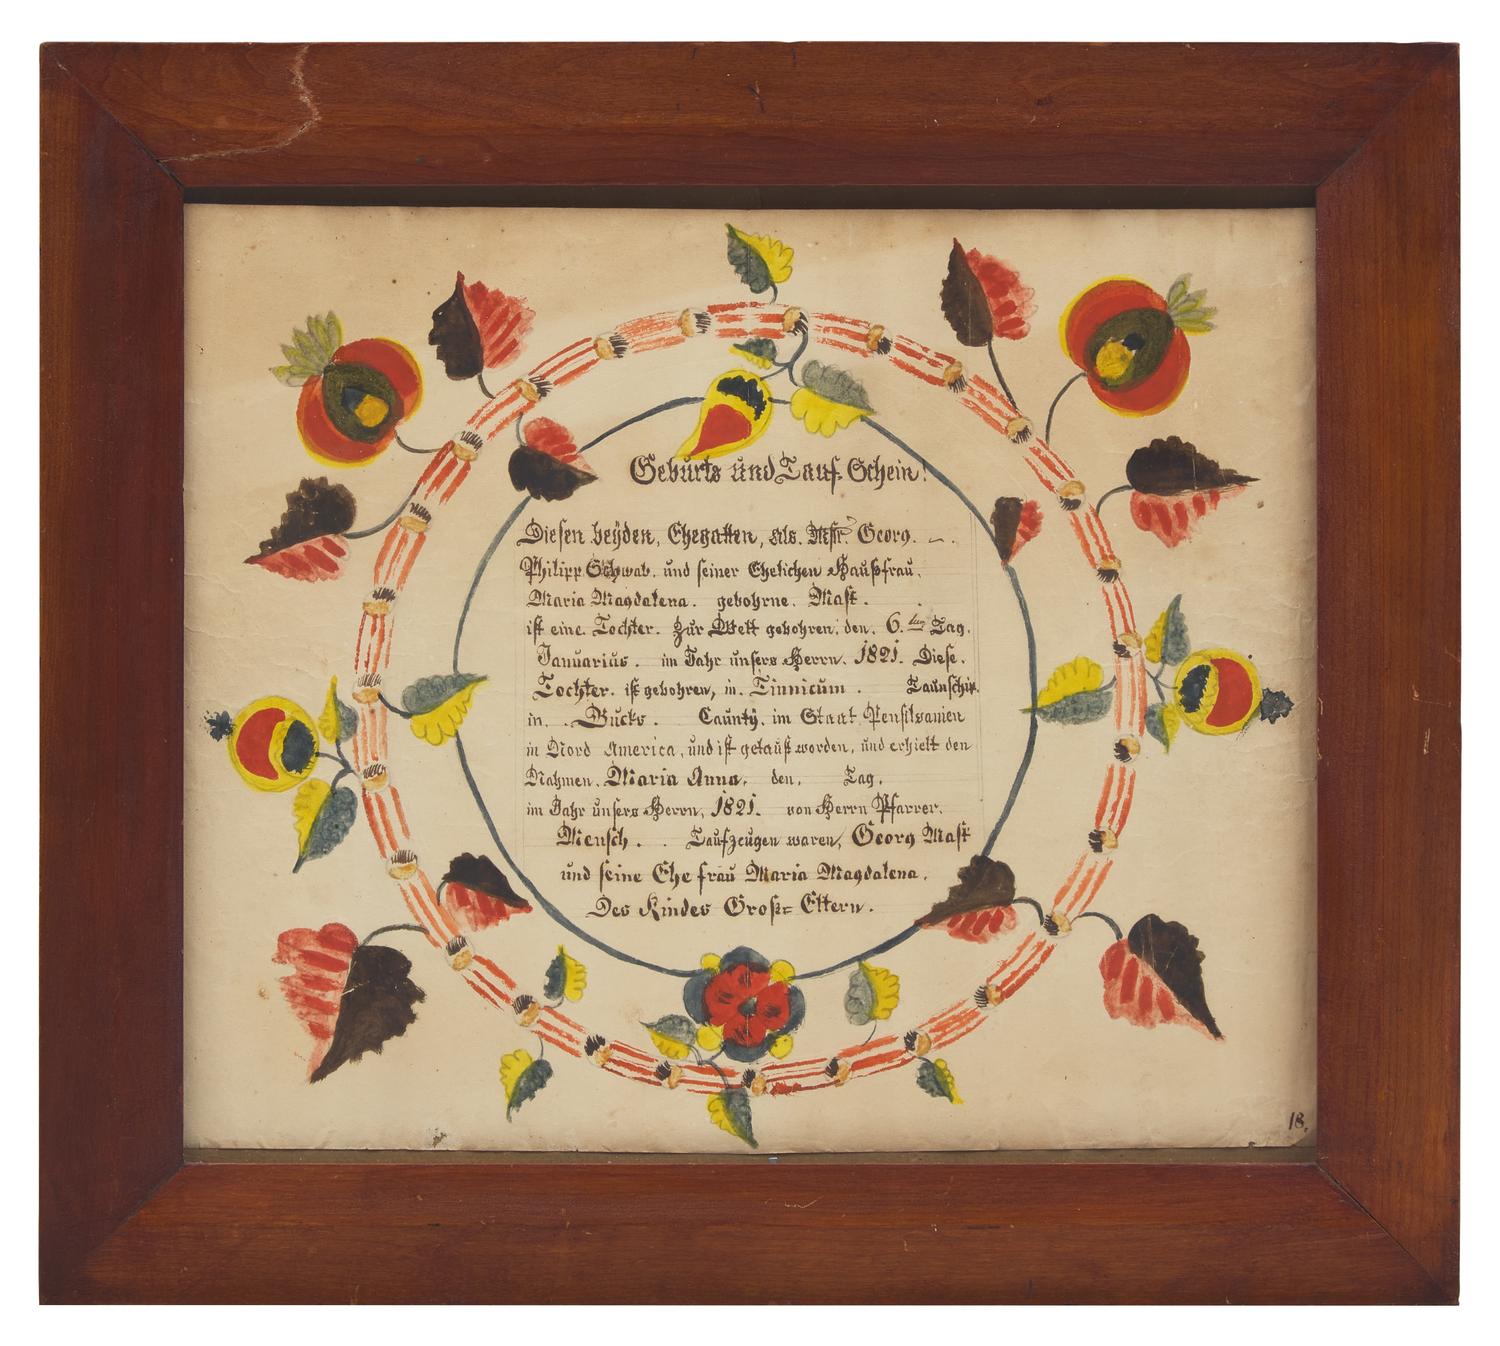 Geburts und Tauf-Schein!
Diesen beyden, Ehegatten, als. Mstr. Georg.
Philipp Schwab. und seiner Ehelichen Haußfrau,
Maria Magdalena. gebohrne. Mast.
ist eine. Tochter. Zür Welt gebohren, den. 6.ten Tag.
Januarius. im Jahr unsers Herrn. 1821. Diese.
Tochter. ist gebohren, in. Tinnicum. Taunschip.
in. Bucks. Caunty. im Staat Pensilvanien
in Nord America, und ist getauft worden, und erhielt den
Nahmen. Maria Anna. den. Tag.
im Jahr unsers Herrn, 1821. von Herrn Pfarrer.
Mensch. Taufzeugen waren, Georg Mast
und seine Ehe frau Maria Magdalena.
Des Kindes Groß= Eltern.
18.